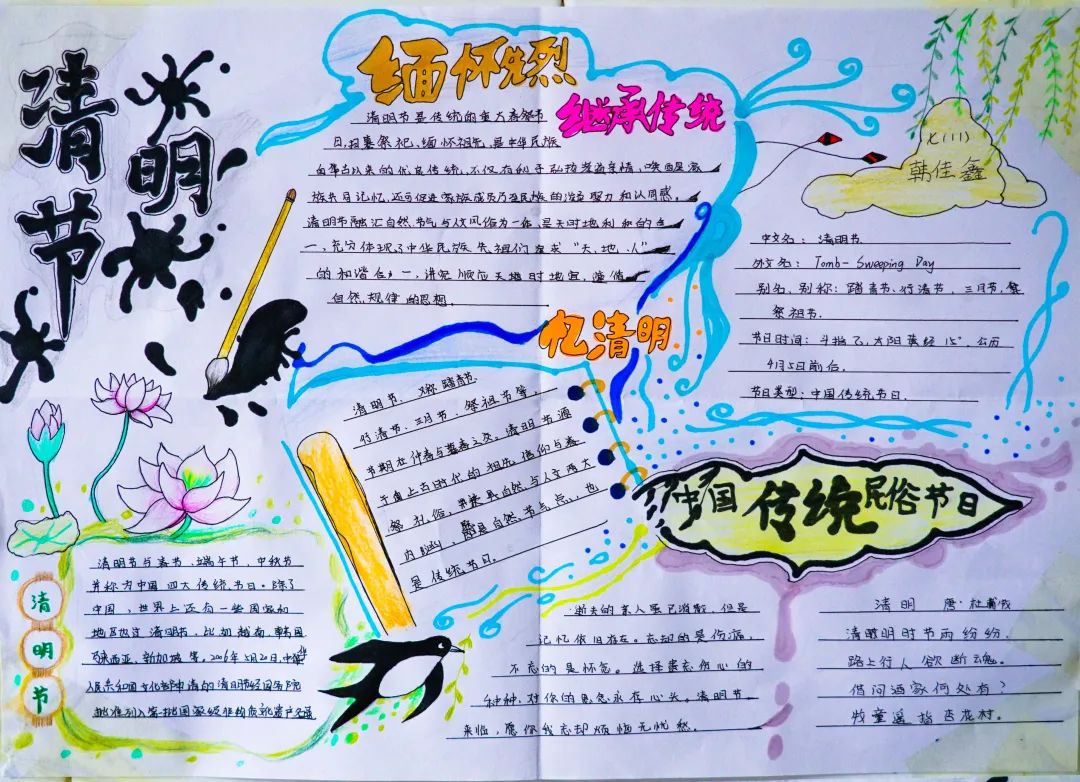 清明节
缅怀先烈
继承传统
清明节是传统的重大春祭节
日,扫墓祭祀、缅怀祖先,是中华民族
自古以来的优良传统,不仅有利于弘扬孝道亲情、唤醒家
族共同记忆,还可促进家族成员乃至民族的凝聚力和认同感。
清明节融汇自然节气与人文风俗为一体,是天时地利人和的合
一,充分体现了中华民族先祖们追求“天、地、人”
的和谐合一,讲究顺应天地时宜、遵循
自然规律的思想。
七(1)
韩佳鑫
中文名:清明节
外文名:Tomb-Sweeping Day
别名、别称:踏青节、行清节、三月节、祭
祭祖节.
节日时间:斗指乙,太阳黄经15°,公历
4月5日前后.
节日类型:中国传统节日.
忆清明
清明节,又称踏青节、
行清节、三月节、祭祖节等,
节期在仲春与暮春之交。清明节源
于自上古时代的祖先信仰与春
祭礼俗,兼具自然与人文两大
内涵,既是自然节气点,也
是传统节日.
中国传统民俗节日
清明节与春节、端午节、中秋节
并称为中国四大传统节日。除了
中国,世界上还有一些国家和
地区也过清明节,比如越南、韩国
马来西亚、新加坡等。2006年5月20日,中华
清明节
逝去的亲人虽已消散,但是
记忆依旧存在。忘却的是伤痛,
不忘的是怀念。选择遗忘伤心的
种种,对你的思念永存心头。清明节
来临,愿你我忘却烦恼无忧愁。
清明 唐·杜牧
清明时节雨纷纷.
路上行人欲断魂。
借问酒家何处有?
牧童遥指杏花村。